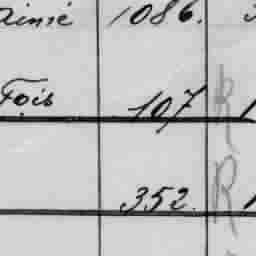 Aimé 1086.
Fois 107 1
352. 1